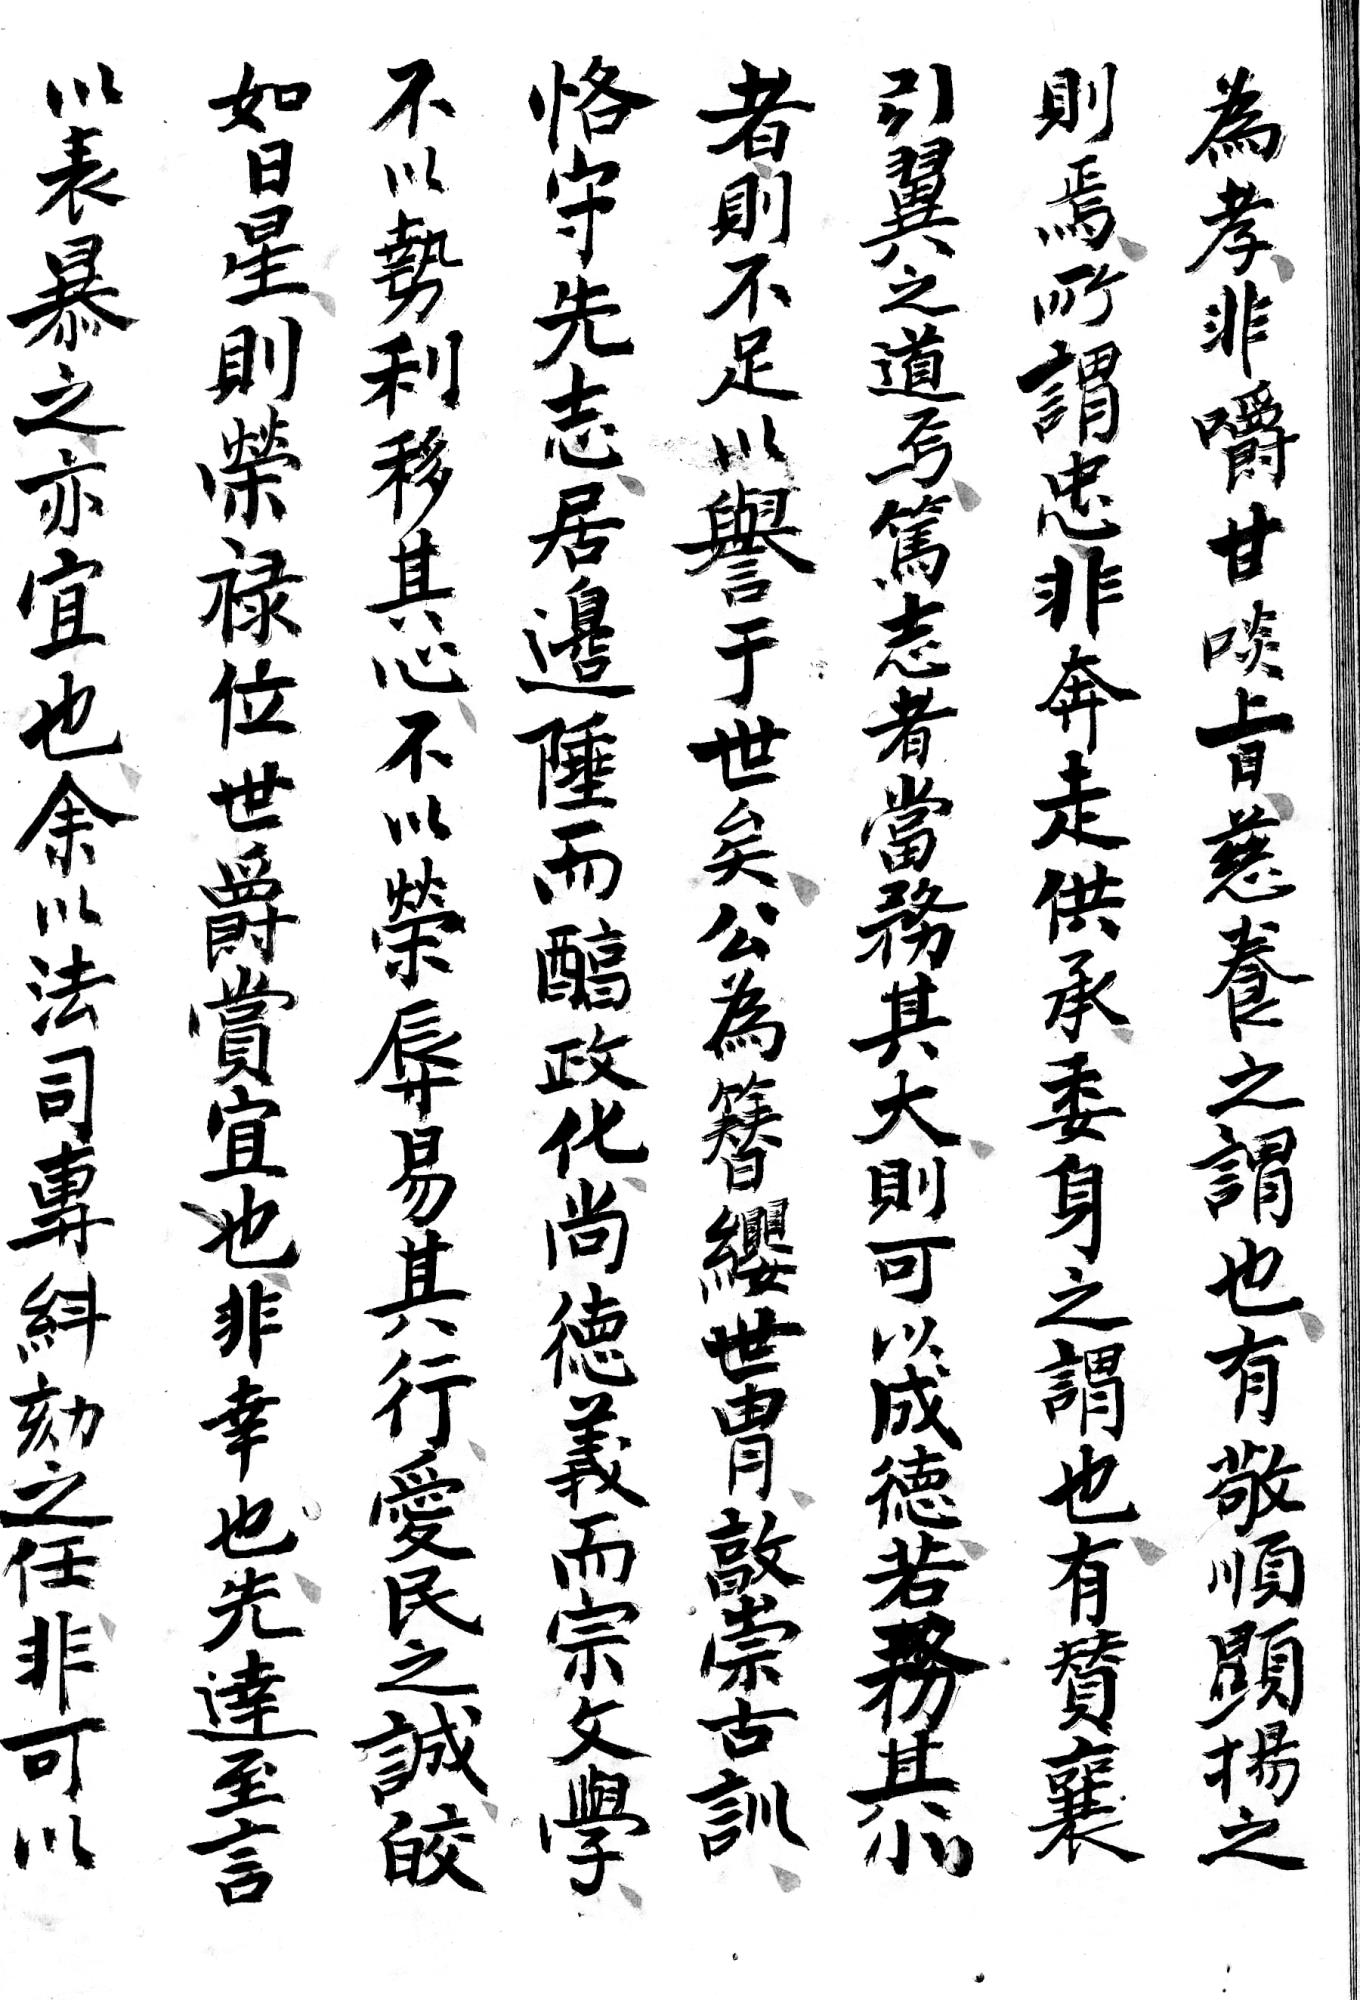 為孝非嚼甘啖上旨慈養之謂也有敬順顯揚之
則焉所謂忠非奔走供承委身之謂也有賛襄
引翼之道焉篤志者當務其大則可以成德若務其小
者則不足以譽于世矣公為簪纓世胄敦崇古訓
恪守先志居邉陲而醕政化尚德義而宗文學
不以勢利移其心不以榮辱易其行愛民之誠皎
如日星則榮禄位世爵賞宜也非幸也先達至言
以表暴之亦宜也余以法司専糾劾之任非可以